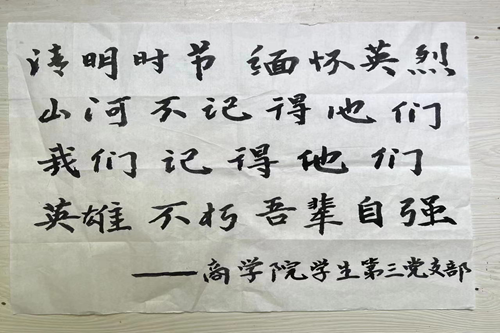 清明时节 缅怀英烈
山河不记得他们
我们记得他们
英雄不朽 吾辈自强
——商学院学生第三党支部